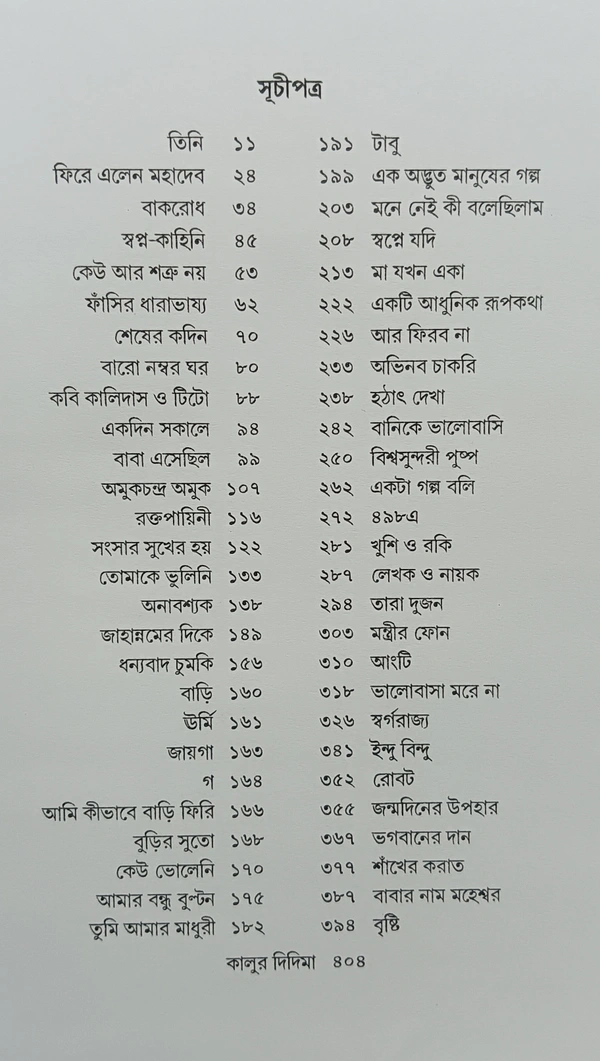 সূচীপত্র
তিনি ১১
ফিরে এলেন মহাদেব ২৪
বাকরোধ ৩৪
স্বপ্ন-কাহিনি ৪৫
কেউ আর শত্রু নয় ৫৩
ফাঁসির ধারাভাষ্য ৬২
শেষের কদিন ৭০
বারো নম্বর ঘর ৮০
কবি কালিদাস ও টিটো ৮৮
একদিন সকালে ৯৪
বাবা এসেছিল ৯৯
অমুকচন্দ্র অমুক ১০৭
রক্তপায়িনী ১১৬
সংসার সুখের হয় ১২২
তোমাকে ভুলিনি ১৩৩
অনাবশ্যক ১৩৮
জাহান্নমের দিকে ১৪৯
ধন্যবাদ চুমকি ১৫৬
বাড়ি ১৬০
ঊর্মি ১৬১
জায়গা ১৬৩
গ ১৬৪
আমি কীভাবে বাড়ি ফিরি ১৬৬
বুড়ির সুতো ১৬৮
কেউ ভোলেনি ১৭০
আমার বন্ধু বুল্টন ১৭৫
তুমি আমার মাধুরী ১৮২
১৯১ টাবু
১৯৯ এক অদ্ভুত মানুষের গল্প
২০৩ মনে নেই কী বলেছিলাম
২০৮ স্বপ্নে যদি
২১৩ মা যখন একা
২২২ একটি আধুনিক রূপকথা
২২৬ আর ফিরব না
২৩৩ অভিনব চাকরি
২৩৮ হঠাৎ দেখা
২৪২ বানিকে ভালোবাসি
২৫০ বিশ্বসুন্দরী পুষ্প
২৬২ একটা গল্প বলি
২৭২ ৪৯৮এ
২৮১ খুশি ও রকি
২৮৭ লেখক ও নায়ক
২৯৪ তারা দুজন
৩০৩ মন্ত্রীর ফোন
৩১০ আংটি
৩১৮ ভালোবাসা মরে না
৩২৬ স্বর্গরাজ্য
৩৪১ ইন্দু বিন্দু
৩৫২ রোবট
৩৫৫ জন্মদিনের উপহার
৩৬৭ ভগবানের দান
৩৭৭ শাঁখের করাত
৩৮৭ বাবার নাম মহেশ্বর
৩৯৪ বৃষ্টি
কালুর দিদিমা ৪০৪